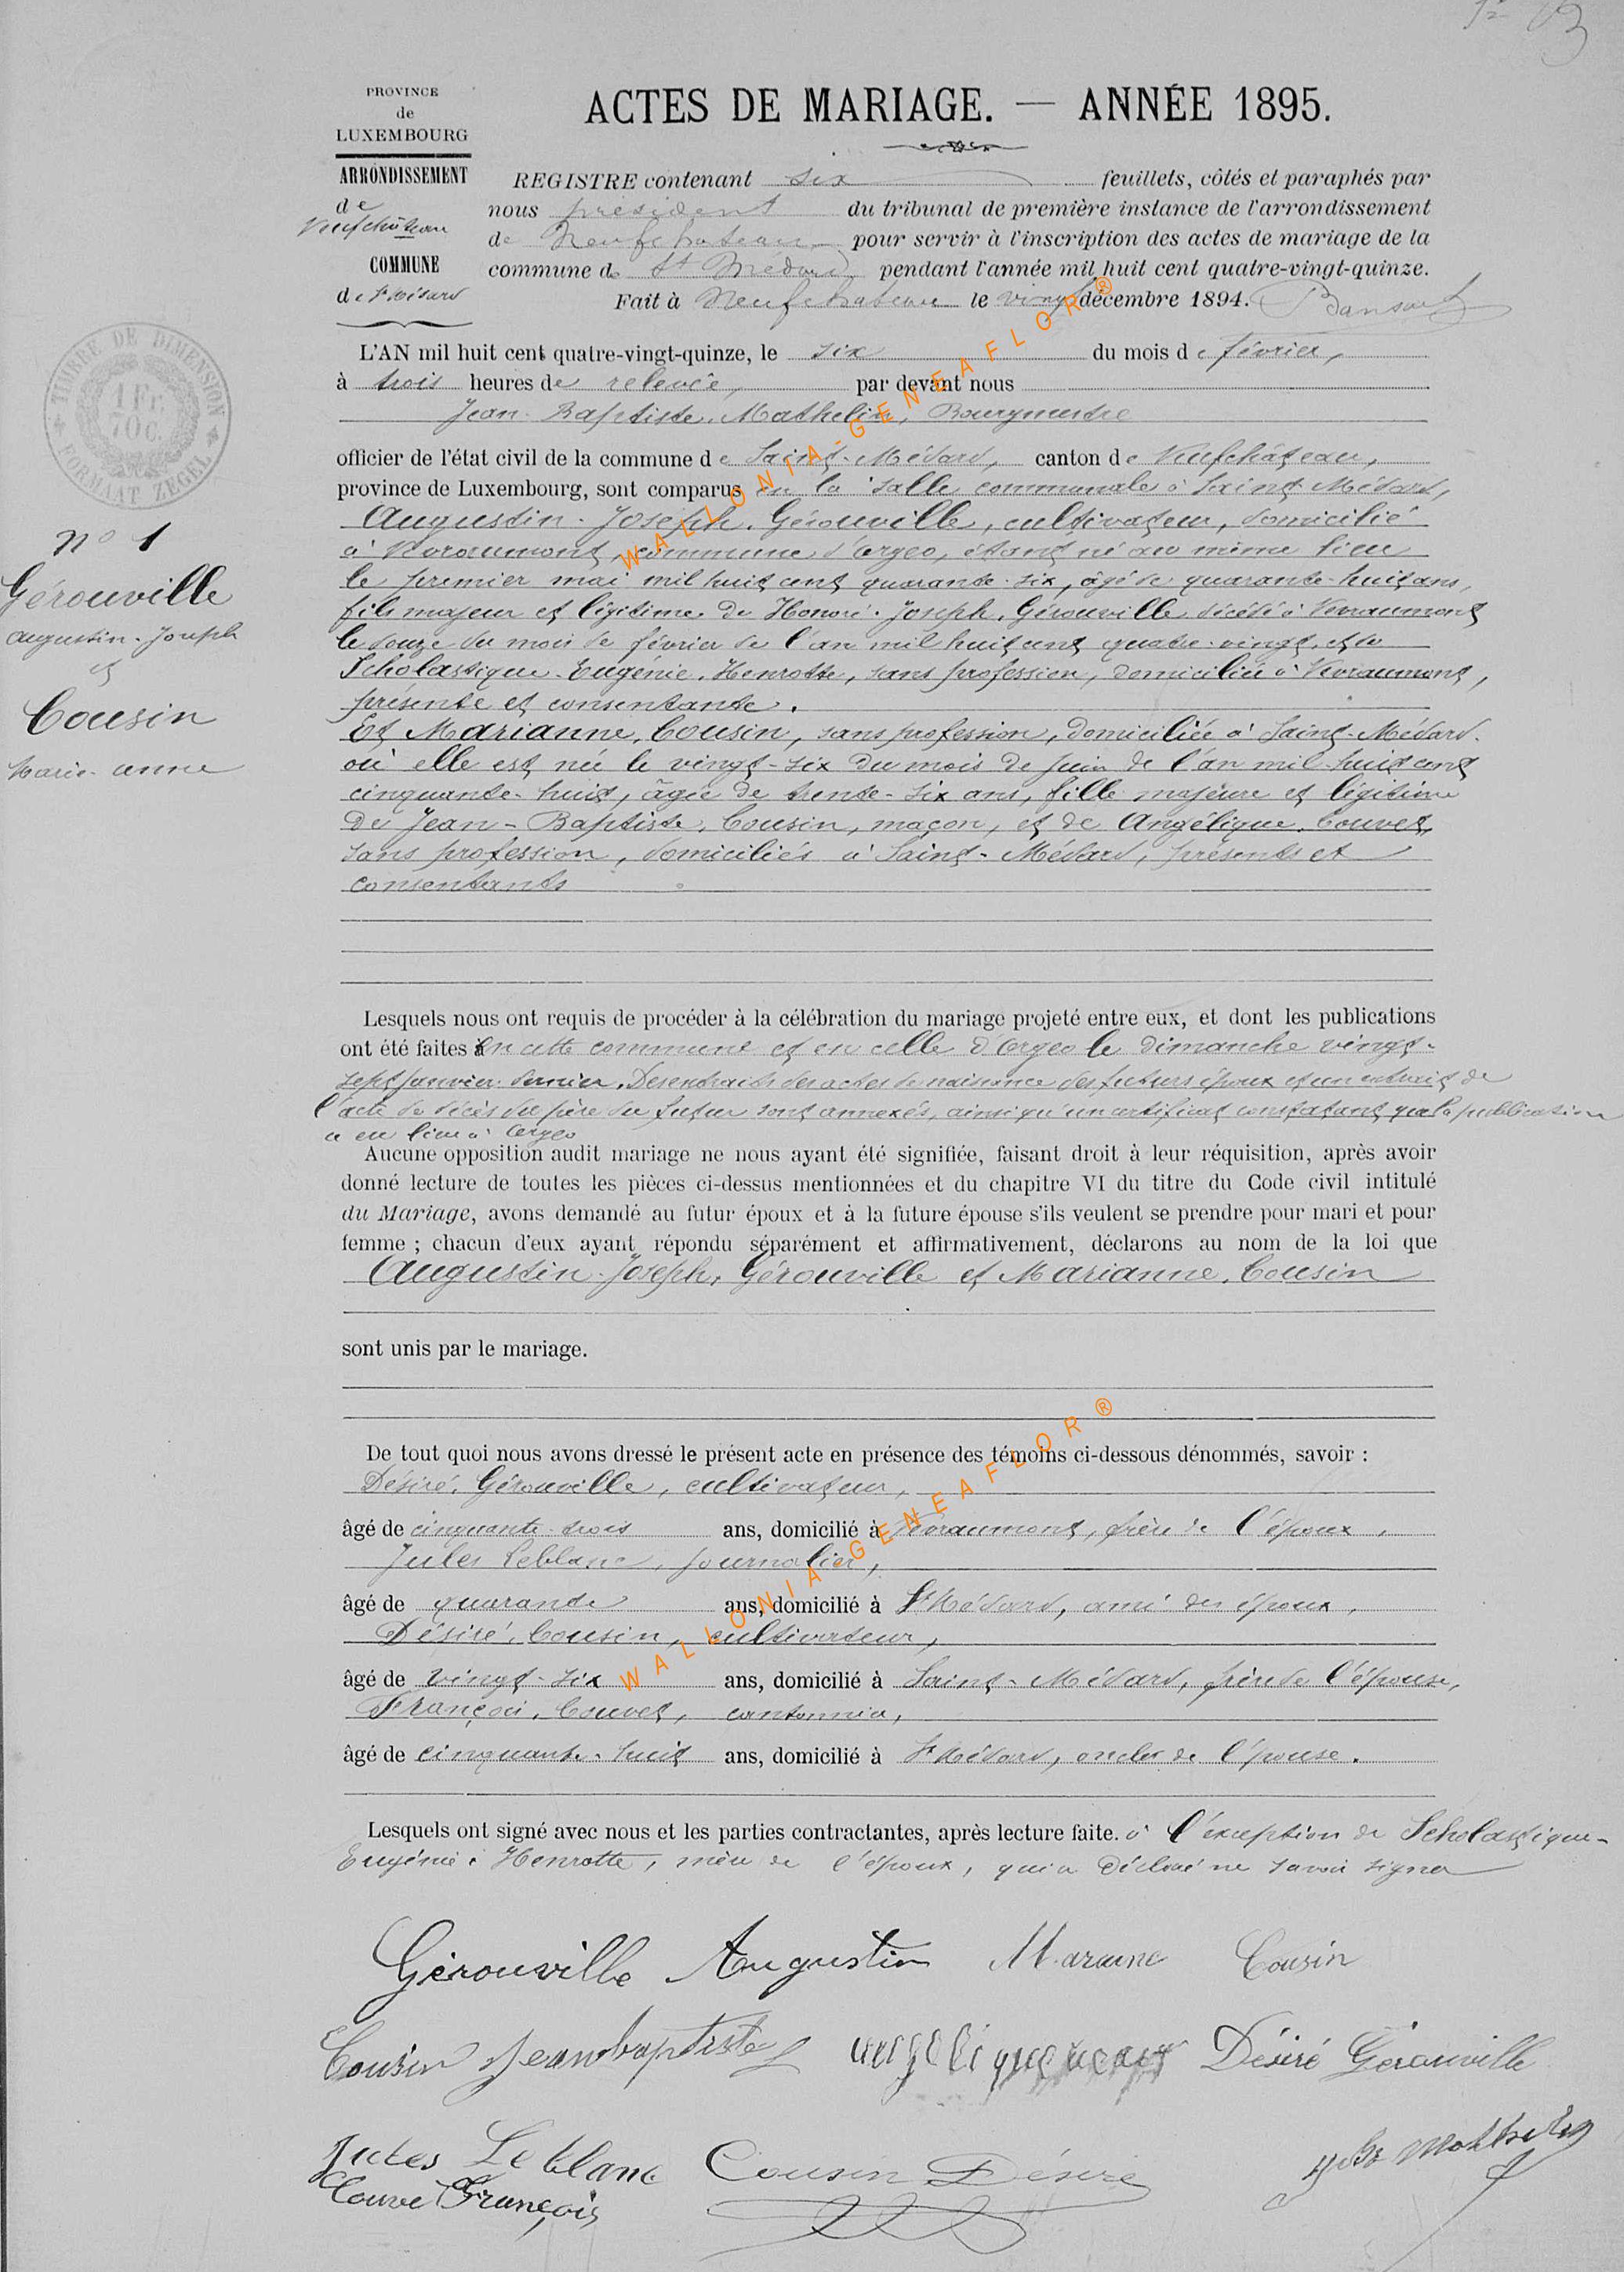 PROVINCE
de
LUXEMBOURG
ARRONDISSEMENT
de
Neufchâteau
COMMUNE
de St Médard
TIMBRE DE DIMENSION
1 Fr.
70 C.
FORMAAT ZEGEL
ACTES DE MARIAGE. — ANNÉE 1895.
REGISTRE contenant six feuillets, côtés et paraphés par
nous président du tribunal de première instance de l'arrondissement
de Neufchateau pour servir à l'inscription des actes de mariage de la
commune de St Médard pendant l'année mil huit cent quatre-vingt-quinze.
Fait à Neufchateau le vingt décembre 1894.
L'AN mil huit cent quatre-vingt-quinze, le six du mois de février,
à trois heures de relevée, par devant nous
Jean-Baptiste, Mathelin, Bourgmestre
officier de l'état civil de la commune de Saint-Médard, canton de Neufchâteau,
province de Luxembourg, sont comparus en la salle communale à Saint-Médard,
Augustin-Joseph, Gérouville, cultivateur, domicilié
à Nevraumont, commune d'Orgeo, étant né au même lieu
le premier mai mil huit cent quarante-six, âgé de quarante-huit ans,
fils majeur et légitime de Honoré-Joseph, Gérouville décédé à Nevraumont
le douze du mois de février de l'an mil huit cent quatre-vingt, et de
Scholastique-Eugénie, Henrotte, sans profession, domiciliée à Nevraumont,
présente et consentante.
Et Marianne, Cousin, sans profession, domiciliée à Saint-Médard
où elle est née le vingt-six du mois de juin de l'an mil-huit cent
cinquante-huit, âgée de trente-six ans, fille majeure et légitime
de Jean-Baptiste, Cousin, maçon, et de Angélique, Couvet,
sans profession, domiciliés à Saint-Médard, présents et
consentants
No 1
Gérouville
Augustin-Joseph
et
Cousin
Marie-Anne
Lesquels nous ont requis de procéder à la célébration du mariage projeté entre eux, et dont les publications
ont été faites en cette commune et en celle d'Orgeo le dimanche vingt-
sept janvier dernier. Des extraits des actes de naissance des futurs époux et un extrait de
l'acte de décès du père du futur sont annexés, ainsi qu'un certificat constatant que la publication
a eu lieu à Orgeo
Aucune opposition audit mariage ne nous ayant été signifiée, faisant droit à leur réquisition, après avoir
donné lecture de toutes les pièces ci-dessus mentionnées et du chapitre VI du titre du Code civil intitulé
du Mariage, avons demandé au futur époux et à la future épouse s'ils veulent se prendre pour mari et pour
femme ; chacun d'eux ayant répondu séparément et affirmativement, déclarons au nom de la loi que
Augustin-Joseph, Gérouville et Marianne, Cousin
sont unis par le mariage.
De tout quoi nous avons dressé le présent acte en présence des témoins ci-dessous dénommés, savoir :
Désiré, Gérouville, cultivateur,
âgé de cinquante-trois ans, domicilié à Nevraumont, frère de l'époux,
Jules Leblanc, journalier,
âgé de quarante ans, domicilié à St Médard, ami des époux,
Désiré, Cousin, cultivateur,
âgé de vingt-six ans, domicilié à Saint-Médard, frère de l'épouse,
François, Couvet, cantonnier,
âgé de cinquante-huit ans, domicilié à St Médard, oncle de l'épouse.
Lesquels ont signé avec nous et les parties contractantes, après lecture faite. à l'exception de Scholastique-
Eugénie, Henrotte, mère de l'époux, qui a déclaré ne savoir signer
Gérouville Augustin Maraine Cousin
Cousin Jean baptiste Désiré Gérouville
Jules Leblanc Cousin Désiré
Couvé François
WALLONIA-GENEAFLOR®
WALLONIA-GENEAFLOR®